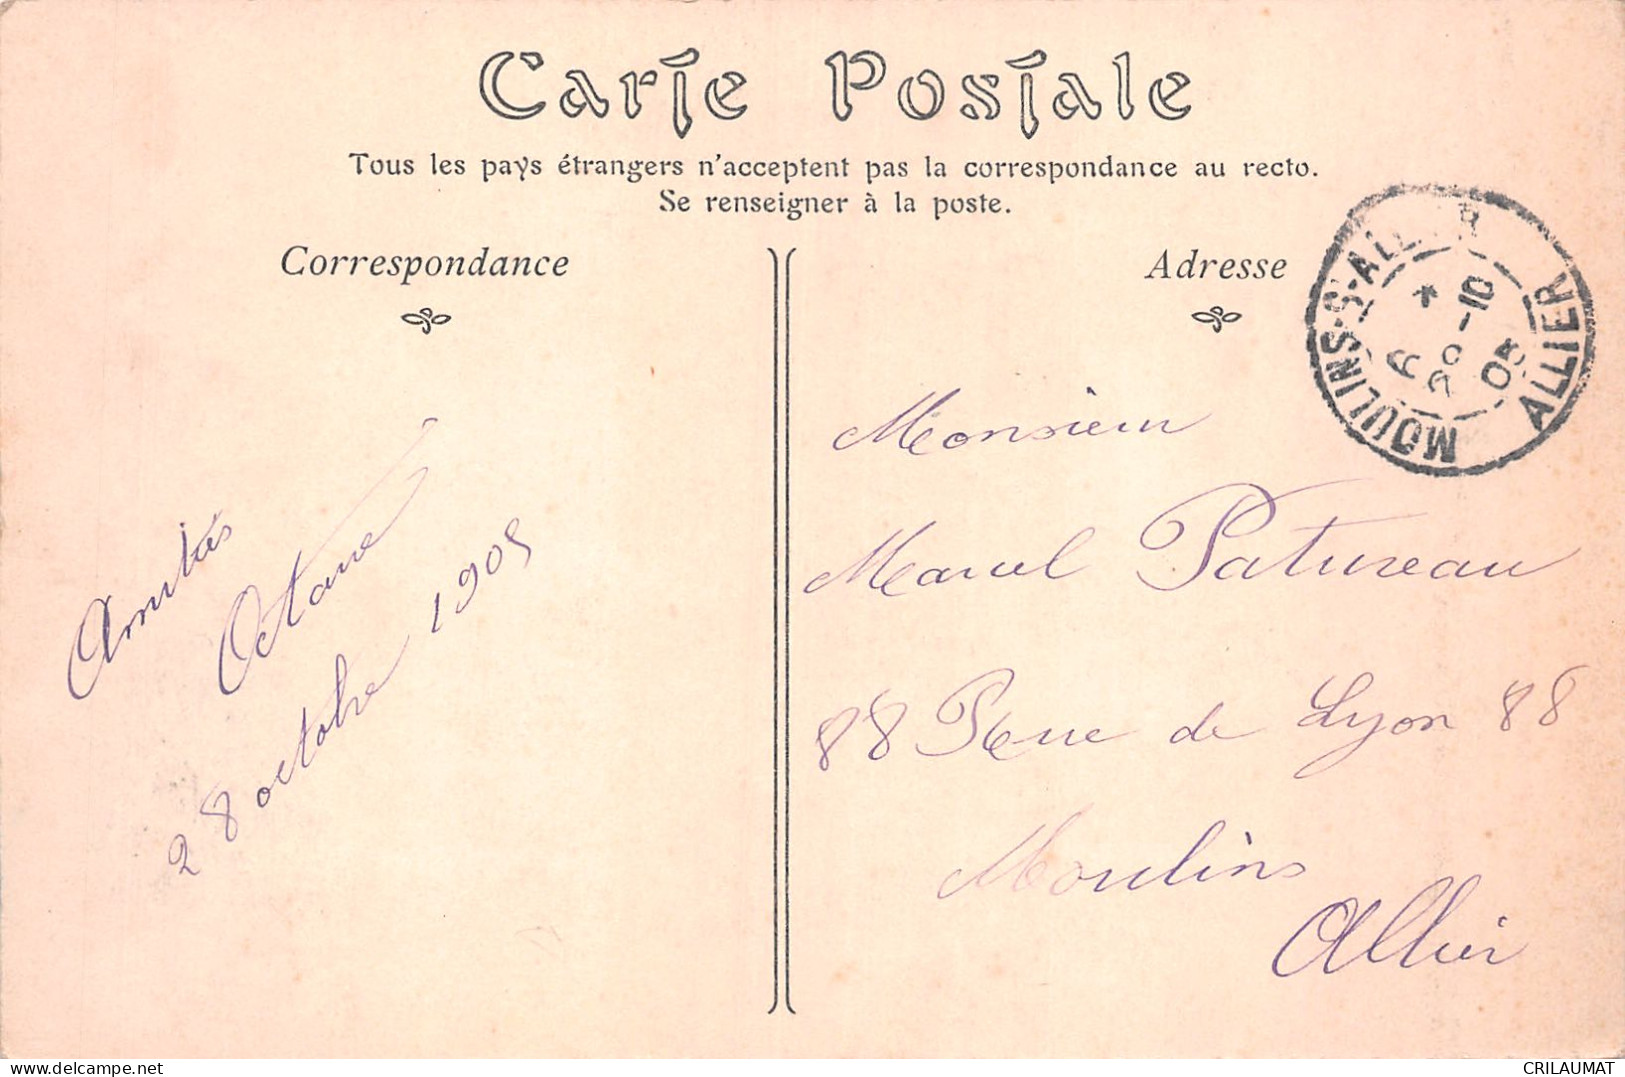 Carte Postale
Tous les pays étrangers n'acceptent pas la correspondance au recto.
Se renseigner à la poste.
Correspondance
Adresse
MOULINS-S-ALLIER
ALLIER
-10
05
Amitiés
Octave
28 octobre 1905
Monsieur
Marcel Patureau
88 Rue de Lyon 88
Moulins
Allier
delcampe.net
CRILAUMAT